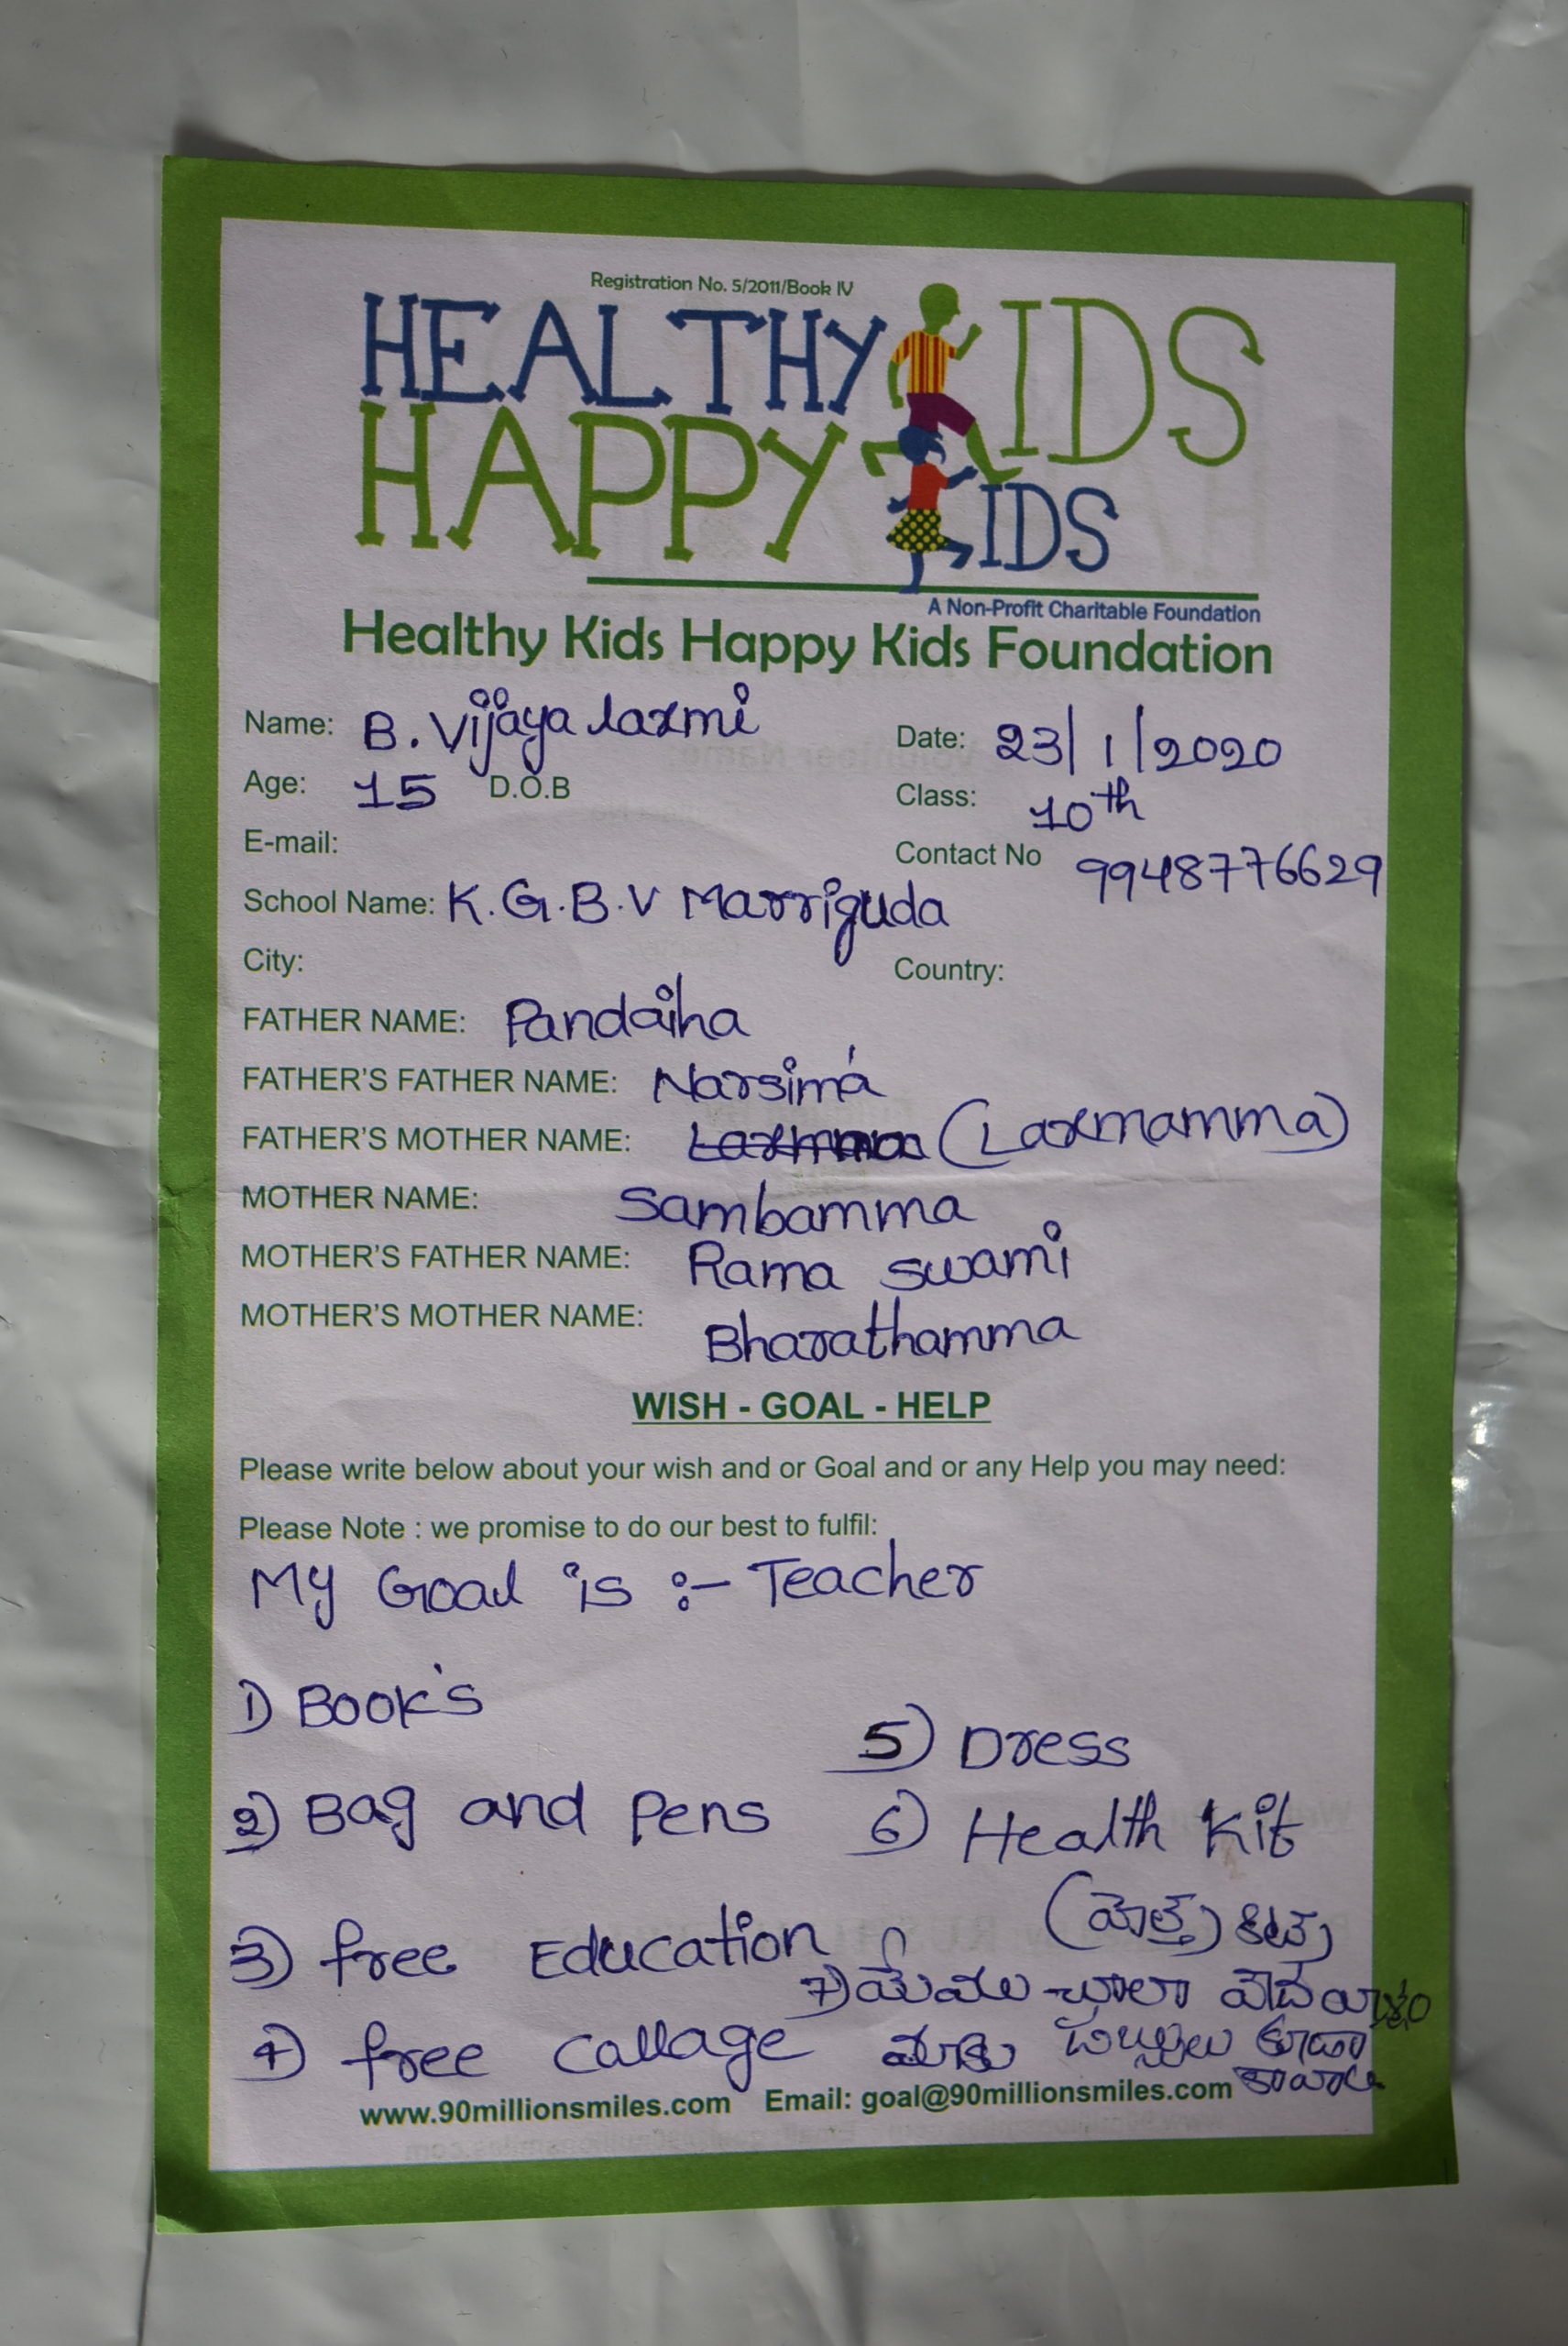 Registration No. 5/2011/Book IV
HEALTHY KIDS
HAPPY KIDS
A Non-Profit Charitable Foundation
Healthy Kids Happy Kids Foundation
Name: B. Vijaya laxmi Date: 23/1/2020
Age: 15 D.O.B Class: 10th
E-mail: Contact No 9948776629
School Name: K.G.B.V Marriguda
City: Country:
FATHER NAME: Pandaiha
FATHER'S FATHER NAME: Narsima
FATHER'S MOTHER NAME: (Laxmamma)
MOTHER NAME: Sambamma
MOTHER'S FATHER NAME: Rama swami
MOTHER'S MOTHER NAME: Bharathamma
WISH - GOAL - HELP
Please write below about your wish and or Goal and or any Help you may need:
Please Note : we promise to do our best to fulfil:
My Goal is :- Teacher
1) Book's
5) Dress
2) Bag and Pens
6) Health Kit
3) free Education
7) మేము చాలా
4) free Callage
మాకు డబ్బులు కూడా
కావాలి
www.90millionsmiles.com Email: goal@90millionsmiles.com